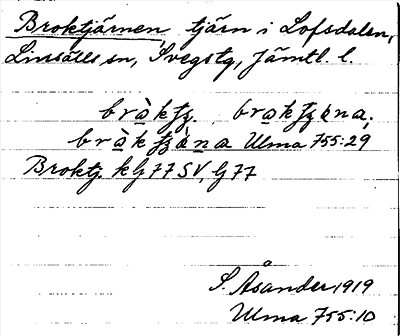 Broktjärnen, tjärn i Lofsdalen,
Linsälls sn, Svegs tg, Jämtl. l.
bròktj. broktjäna,
bròktjäna Ulma 755:29
Broktj. kG 77 SV, G 77
S. Åsander 1919
Ulma 755:10